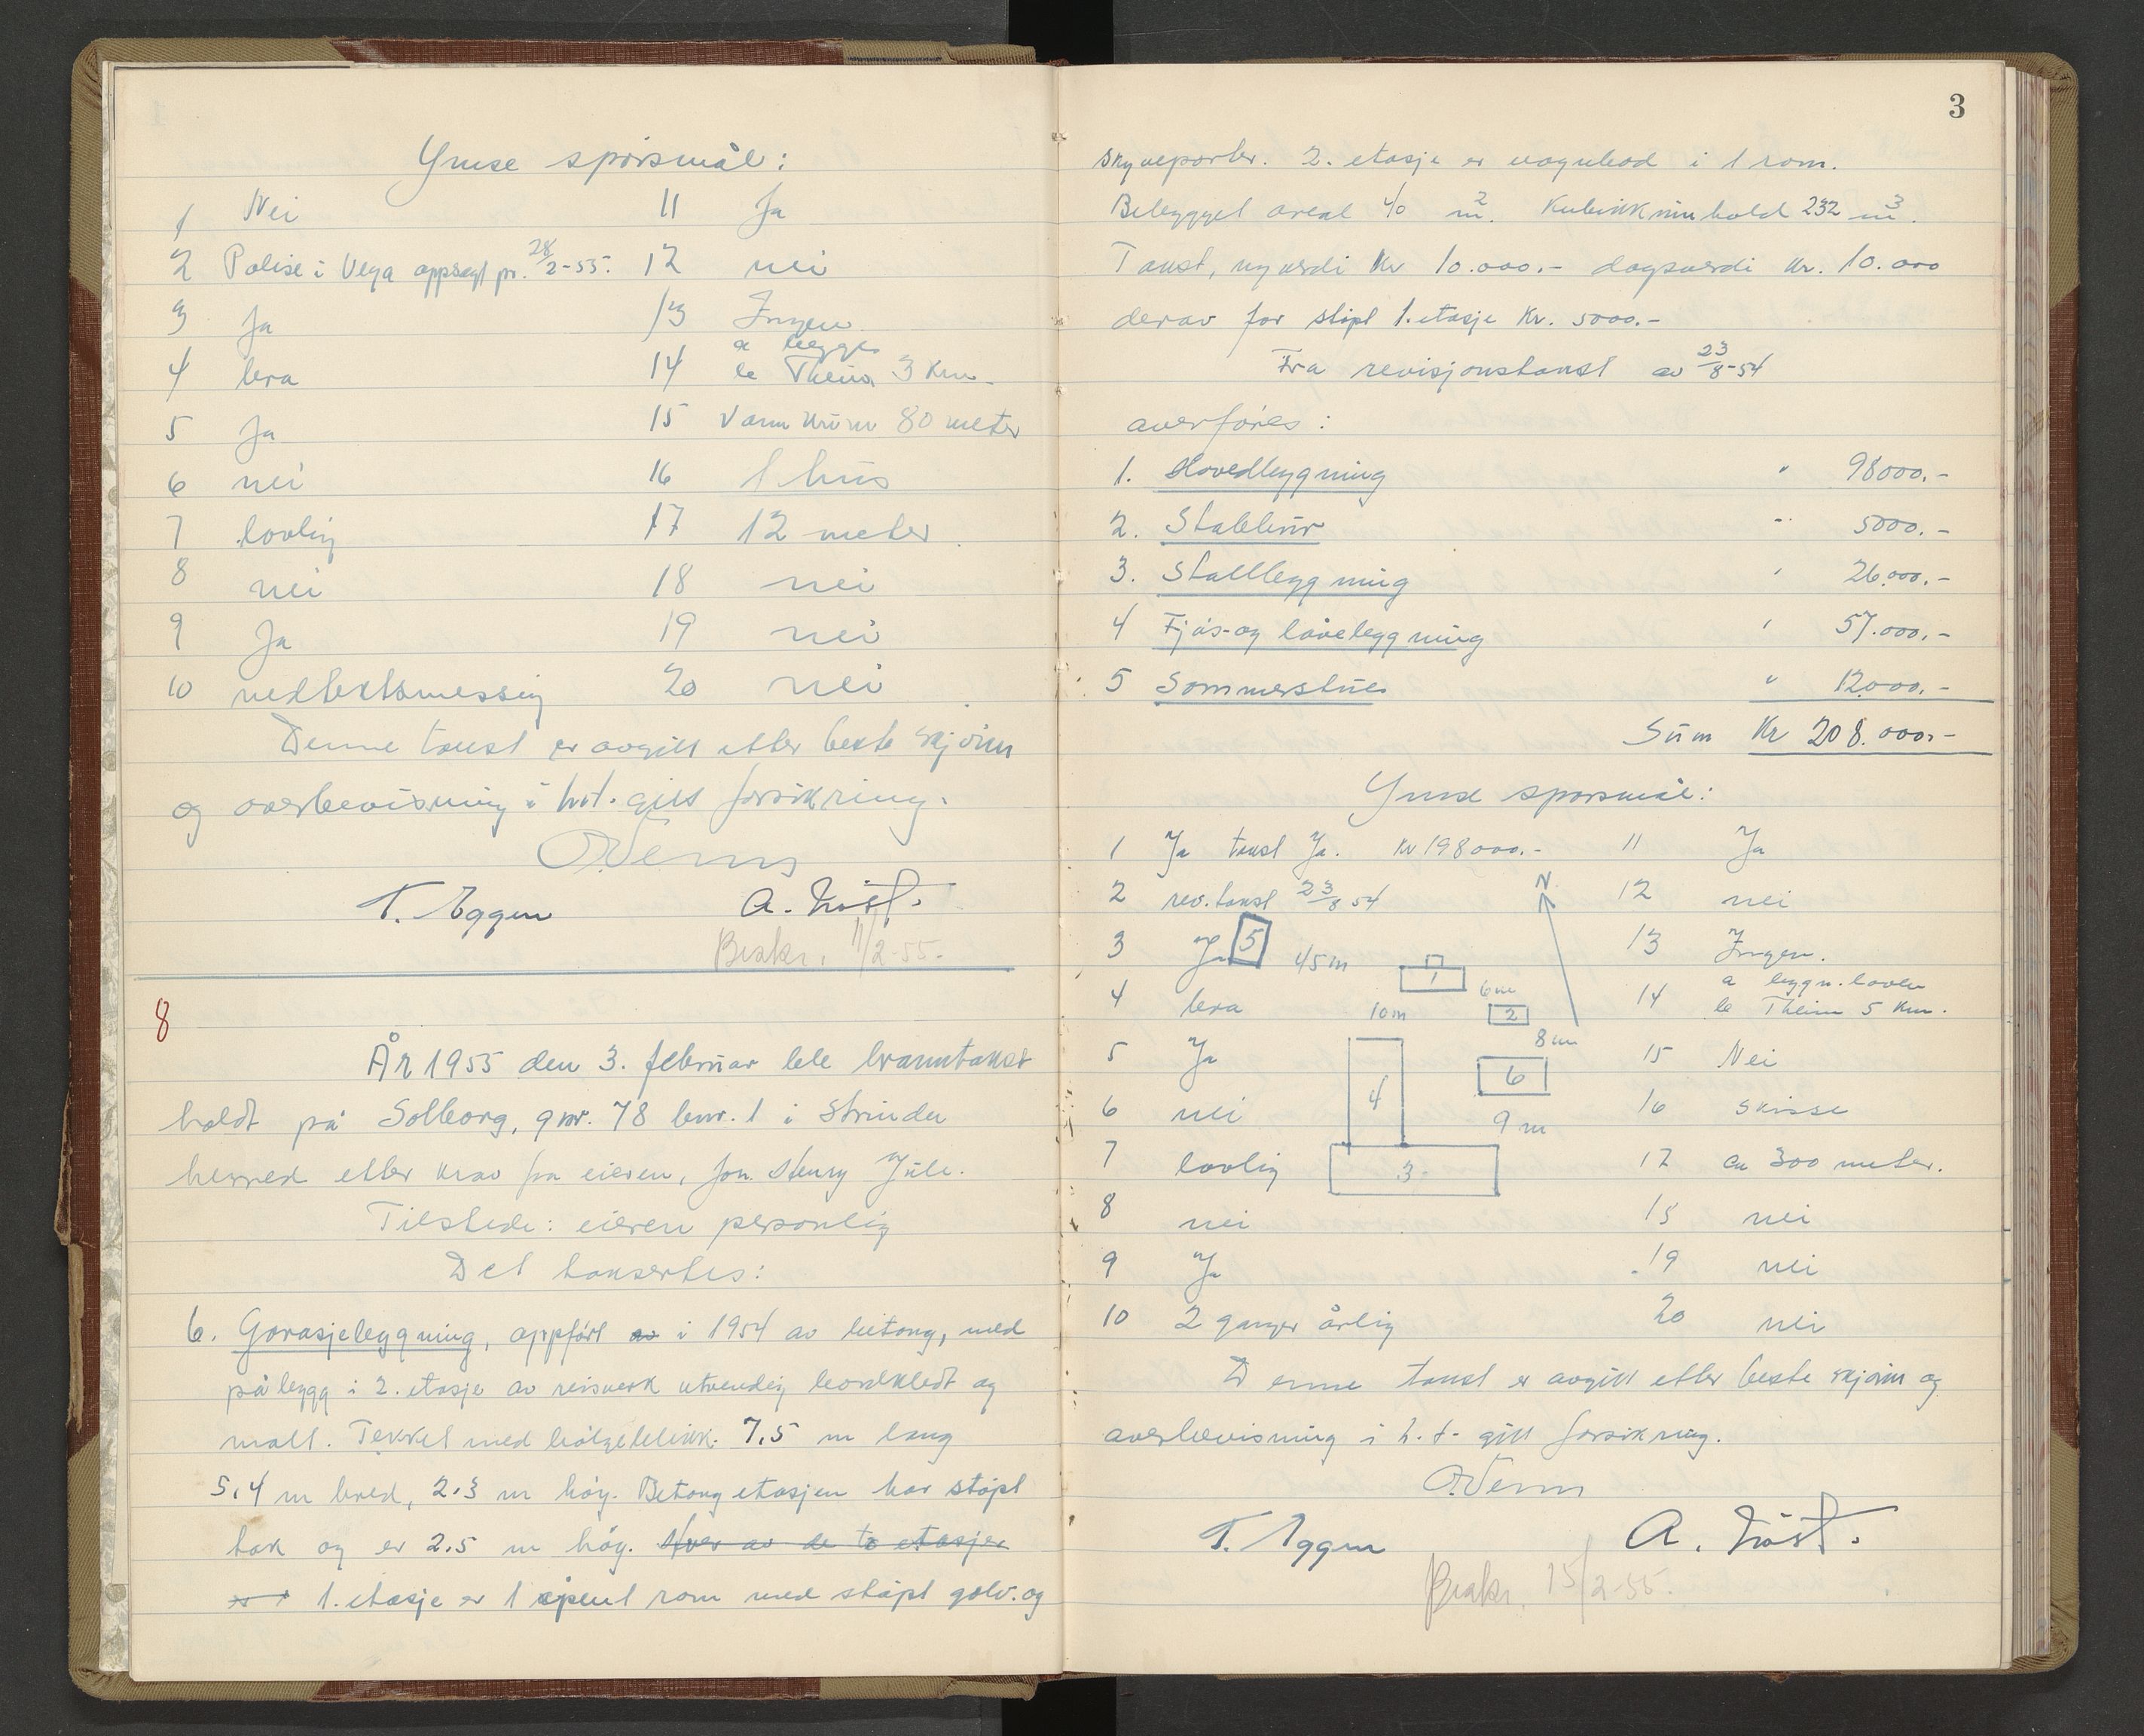 Ymse spörsmål:
1 Nei 11 Ja
2 Polise i Vega oppsagt pr. 28/2-55. 12 nei
3 Ja 13 Ingen
4 bra 14 a bygge
le Theim 3 Km.
5 Ja 15 80 meter
6 nei 16 1 hus
7 lovlig 17 12 meter
8 nei 18 nei
9 Ja 19 nei
10 vedtektsmessig 20 nei
Denne takst er avgitt etter beste skjönn
og overbevisning i hht. gitt forsikring.
T. Eggen A.
Beskr. 11/2-55.
8
År 1955 den 3. februar ble branntakst
holdt på Solborg, gnr. 78 bnr. 1 i Strinda
herred etter krav fra eieren, Henry Jule.
Tilstede: eieren personlig
Det taksertes:
6. Garasjebygning, oppfört av i 1954 av betong, med
påbygg i 2. etasje av reisverk utvendig bordkledt og
malt. Tekket med bölgeblikk. 7,5 m lang
5,4 m bred, 2.3 m höy. Betong etasjen har stöpt
tak og er 2.5 m höy. Hver av de to etasjer
er 1. etasje er 1 åpent rom med stöpt golv. og
3
skyveporter. 2. etasje er vognbod i 1 rom.
Bebygget areal 40 m². Kubikkinnhold 232 m³.
Takst, nyverdi Kr 10.000.- dagsverdi Kr. 10.000
derav for stöpt 1. etasje Kr. 5000.-
Fra revisjonstakst av 23/8-54
overföres:
1. Hovedbygning " 98000.-
2. Stabbur " 5000.-
3. Stallbygning " 26.000.-
4 Fjös- og låvebygning " 57.000.-
5 Sommerstue " 12000.-
Sum Kr 208.000.-
Ymse spörsmål:
1 Ja takst Ja. Kr 198000.- 11 Ja
2 rev. takst 23/8 54 N 12 nei
3 Ja 5 45 m 1 13 Ingen.
4 bra 10 m 6 m 2 14 a bygn. loven
le Theim 5 Km.
5 Ja 8 m 15 Nei
6 nei 4 6 9 m 16 skisse
7 lovlig 3 17 ca 300 meter.
8 nei 18 nei
9 Ja 19 nei
10 2 ganger årlig 20 nei
Denne takst er avgitt etter beste skjönn og
overbevisning i h.t. gitt forsikring.
T. Eggen A.
Beskr. 15/2-55.